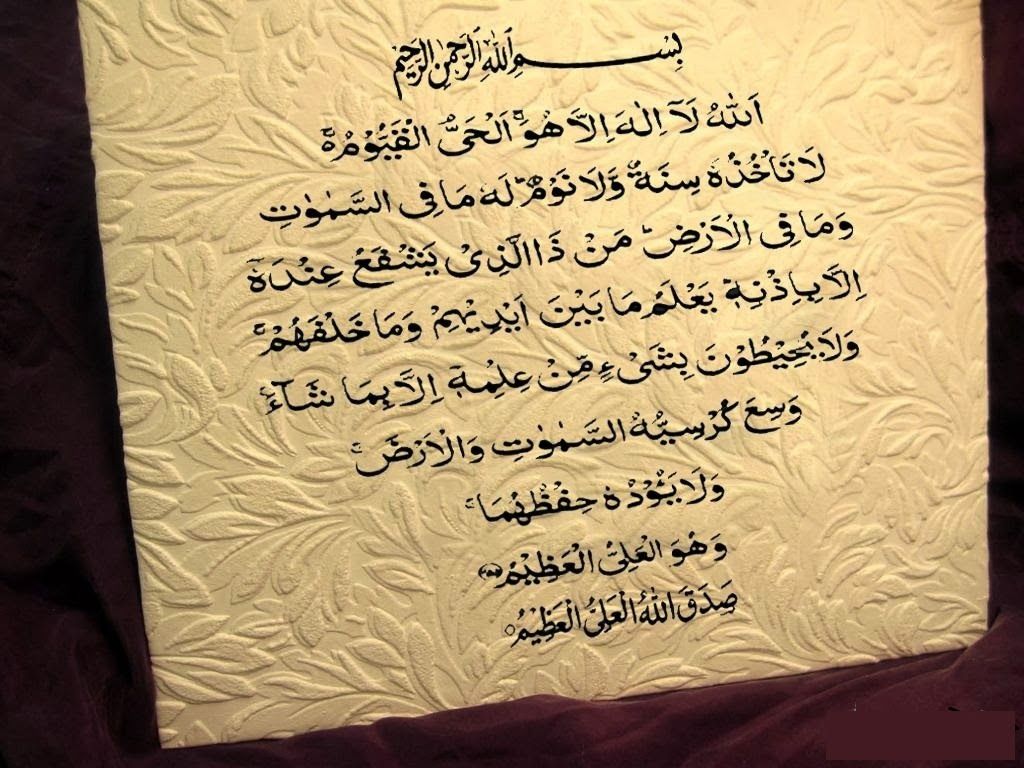 بِسْمِ اللهِ الرَّحْمٰنِ الرَّحِيْمِ
اَللهُ لَآ اِلٰهَ اِلَّا هُوَ ۚ اَلْحَىُّ الْقَيُّوْمُ ۚ
لَا تَاْخُذُهٗ سِنَةٌ وَّلَا نَوْمٌ ؕ لَهٗ مَا فِى السَّمٰوٰتِ
وَمَا فِى الْاَرْضِ ؕ مَنْ ذَا الَّذِىْ يَشْفَعُ عِنْدَهٗۤ
اِلَّا بِاِذْنِهٖ ؕ يَعْلَمُ مَا بَيْنَ اَيْدِيْهِمْ وَمَا خَلْفَهُمْ ۚ
وَلَا يُحِيْطُوْنَ بِشَىْءٍ مِّنْ عِلْمِهٖۤ اِلَّا بِمَا شَآءَ ۚ
وَسِعَ كُرْسِيُّهُ السَّمٰوٰتِ وَالْاَرْضَ ۚ
وَلَا يَئُوْدُهٗ حِفْظُهُمَا ۚ
وَهُوَ الْعَلِىُّ الْعَظِيْمُ ﴿۲۵۵﴾
صَدَقَ اللهُ الْعَلِىُّ الْعَظِيْمُ ○